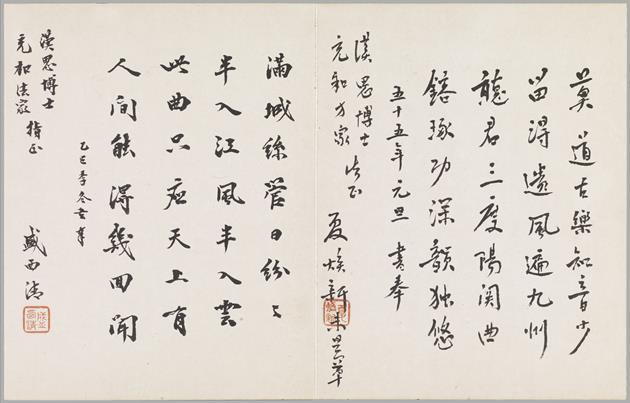 莫道古樂知音少
留得遺風遍九州
聽君三度陽關曲
鎔琢功深韻独悠
五十五年元旦書奉
漢思博士
充和方家法正
夏煥新未是草
滿城絲管日紛〻
半入江風半入雲
此曲只應天上有
人間能得幾回聞
乙巳季冬書奉
漢思博士
充和法家指正
盛西清